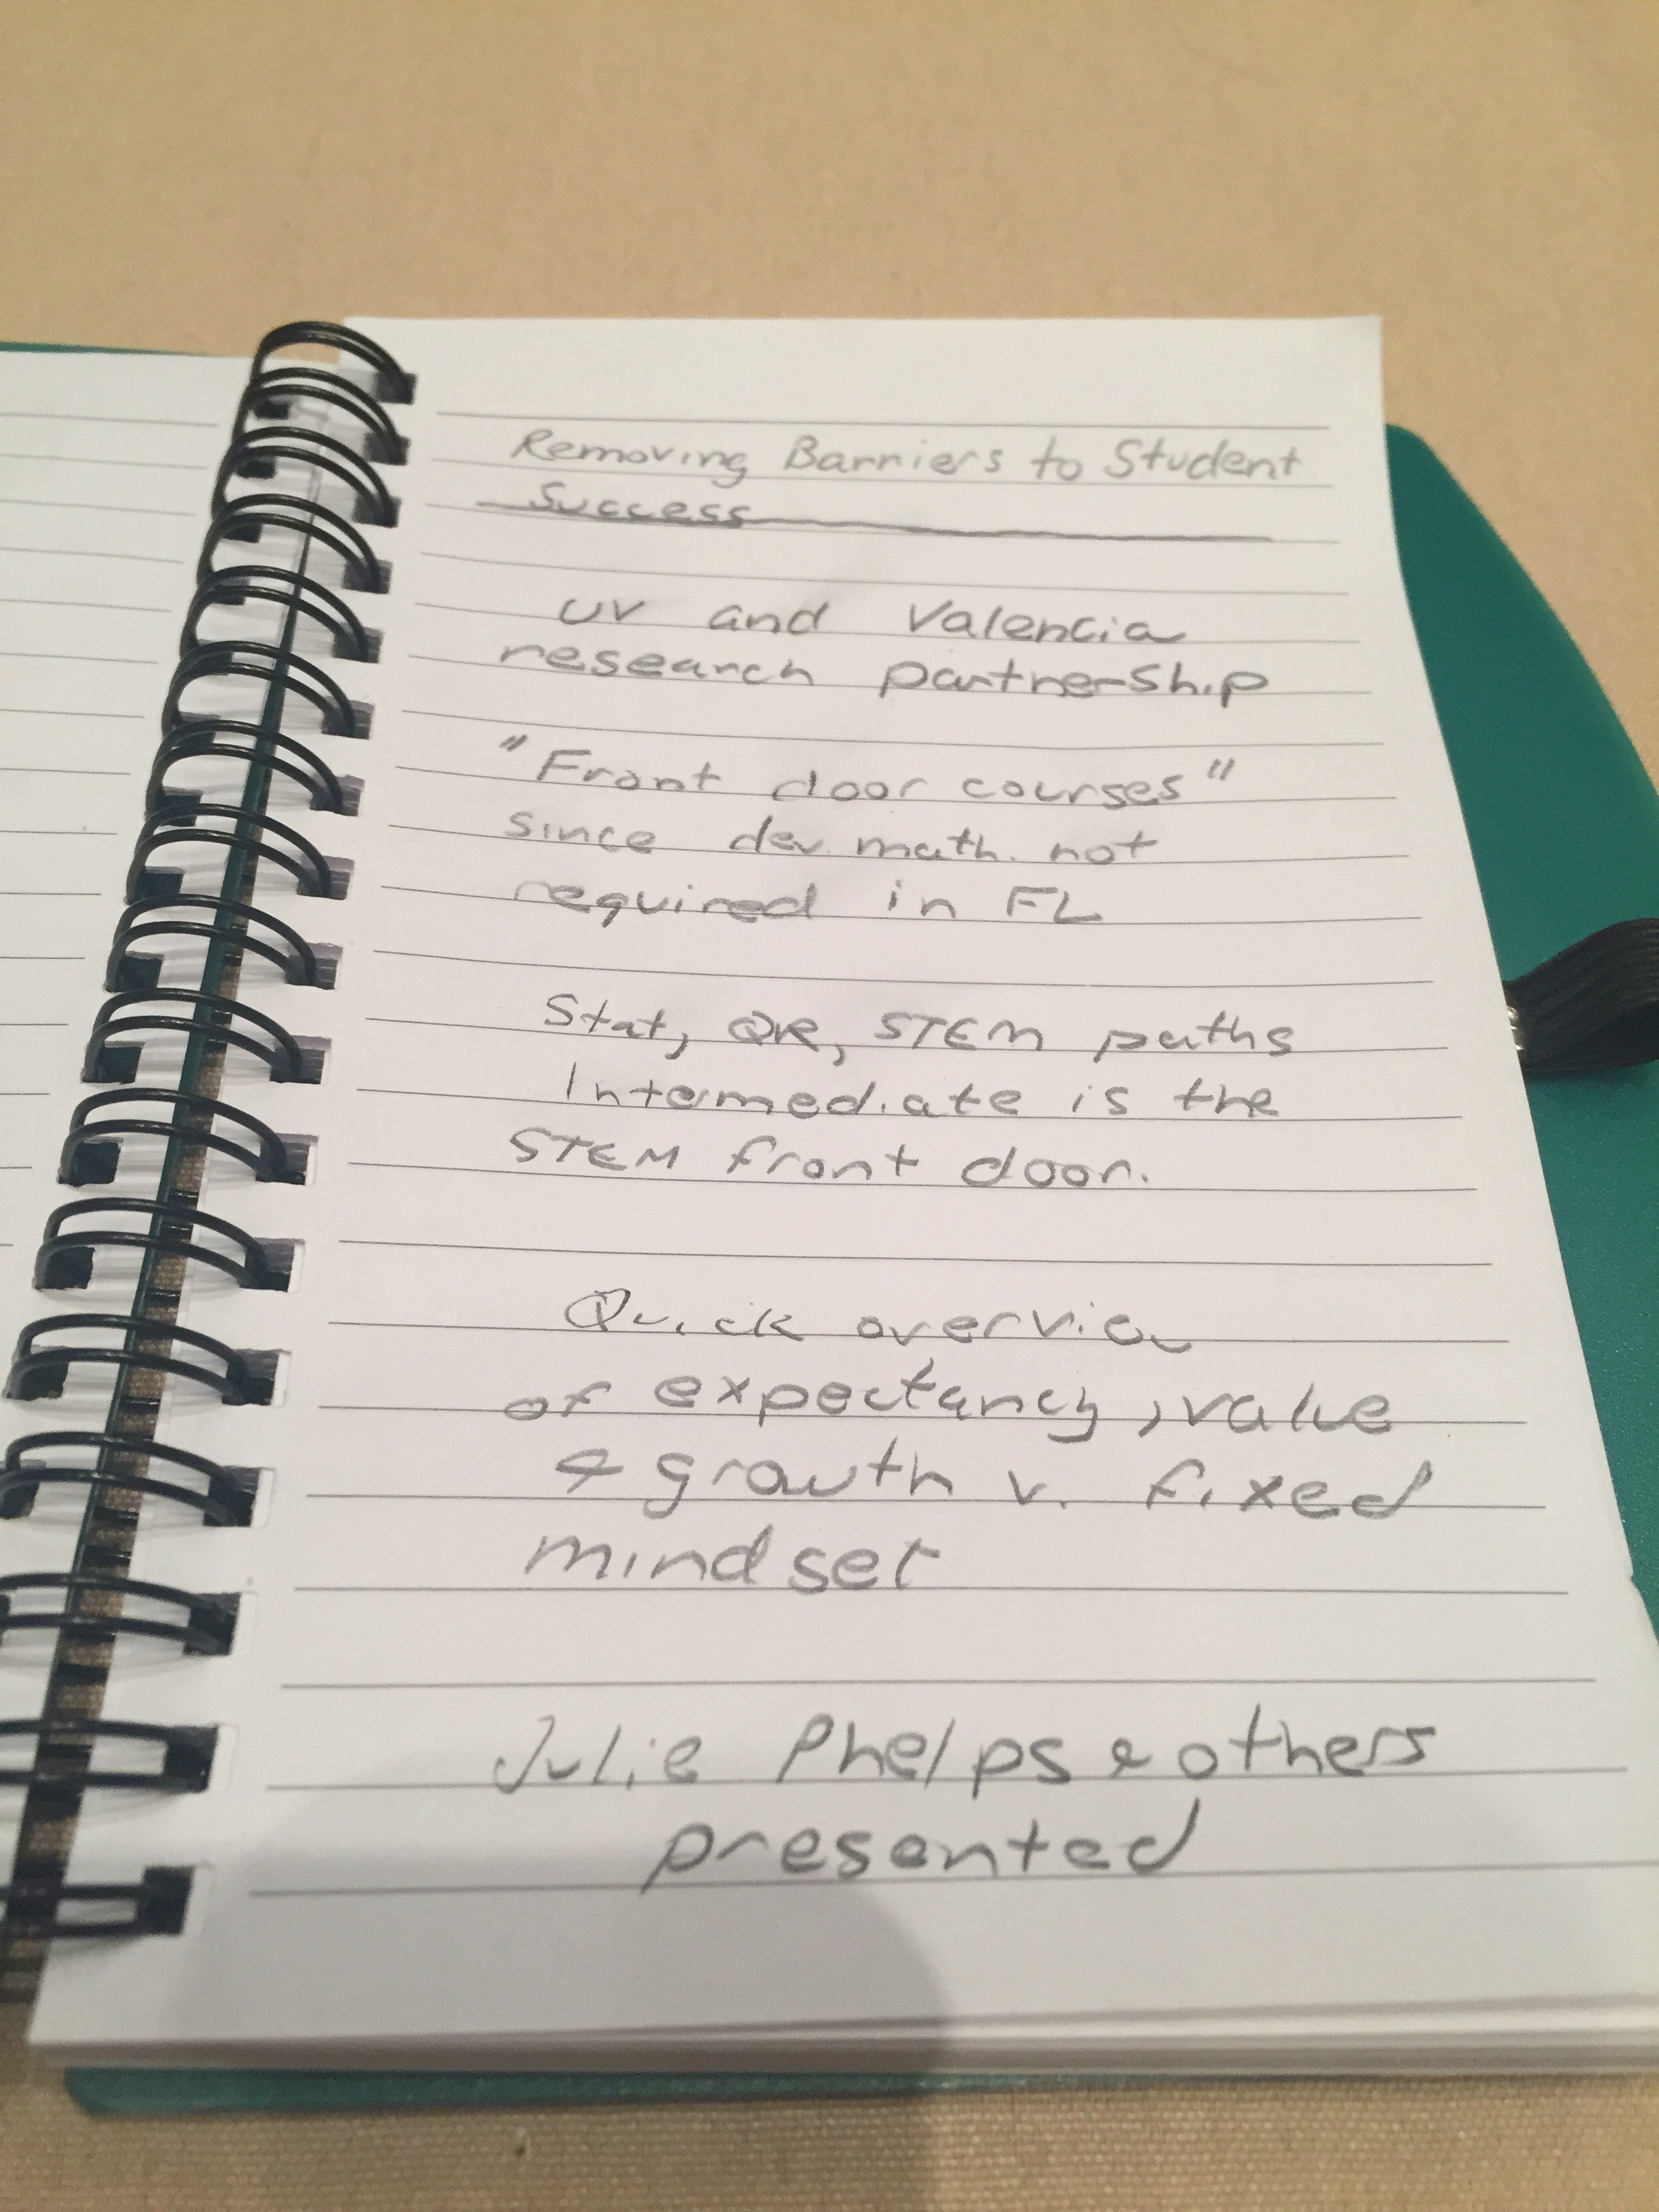 Removing Barriers to Student
Success
UV and Valencia
research partnership
"Front door courses"
since dev. math. not
required in FL
Stat, QR, STEM paths
Intermediate is the
STEM front door.
Quick overview
of expectancy, value
& growth v. fixed
mindset
Julie Phelps & others
presented